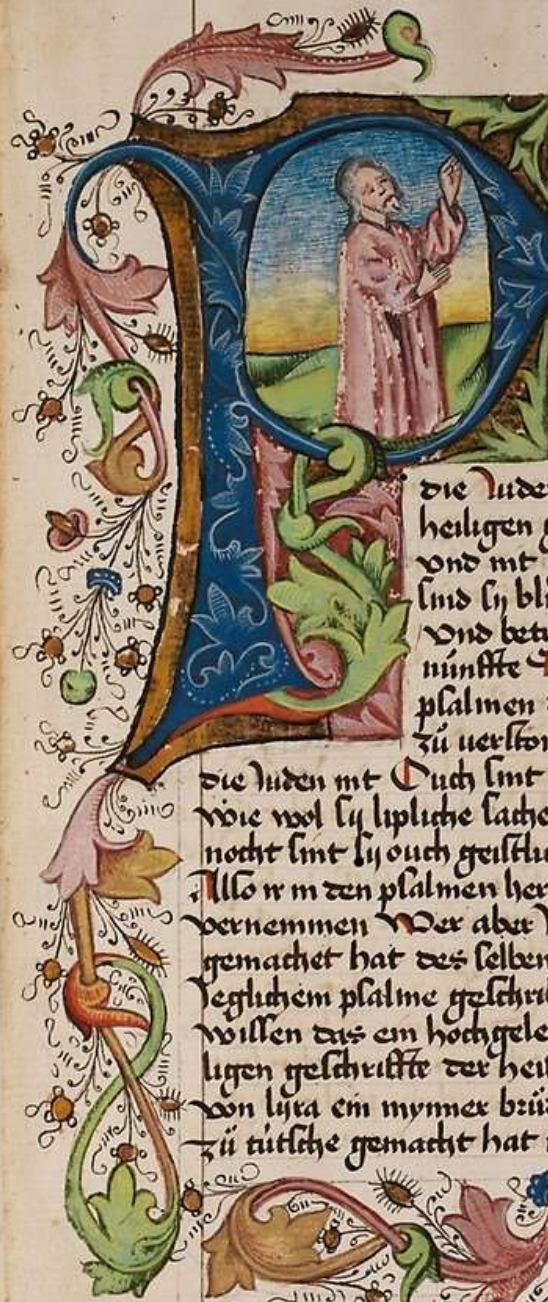 P
die Juden
heiligen
vnd nit
sind sÿ bli
Vnd bett
núnffte
psalmen
zů verston
die Juden nit Ouch sint
wie wol sÿ lipliche sache
nocht sint sÿ ouch geistlic
Also ir in den psalmen her
vernemmen Wer aber
gemachet hat des selben
Jeglichem psalme geschri
willen das ein hochgele
ligen geschriffte der heil
von lÿra ein mynner brů
zů tútsche gemacht hat